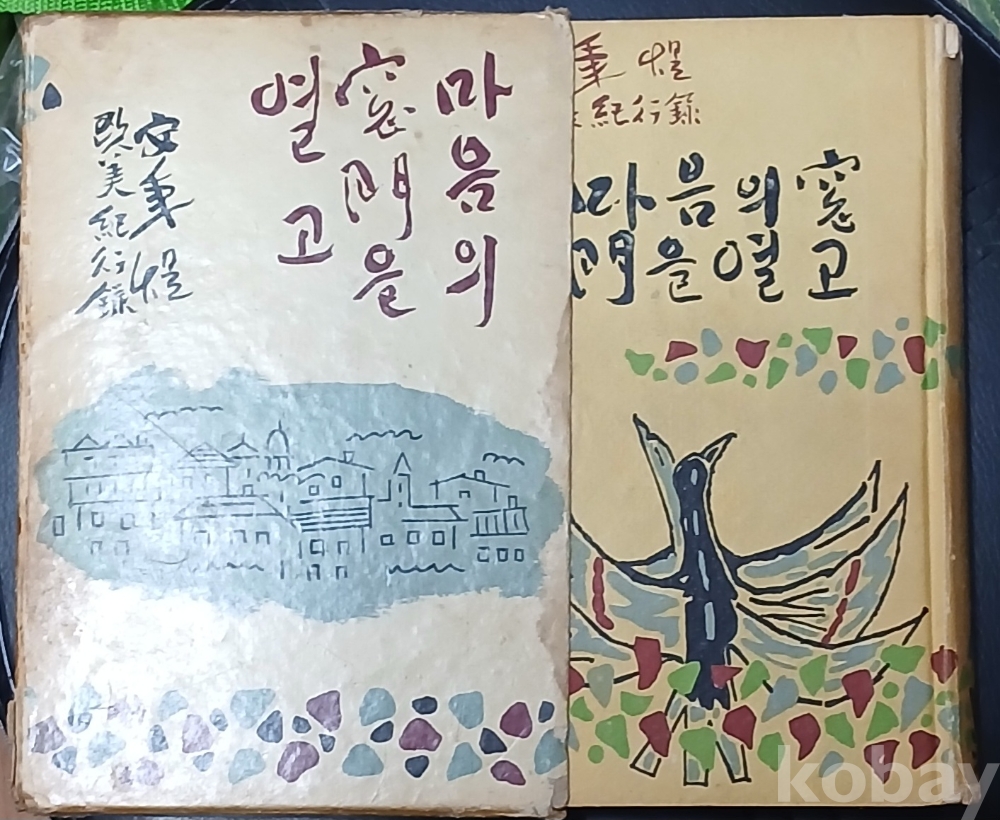 마음의
窓門을
열고
安秉煜
欧美紀行錄
秉煜
紀行錄
마음의 窓
門을 열고
kobay